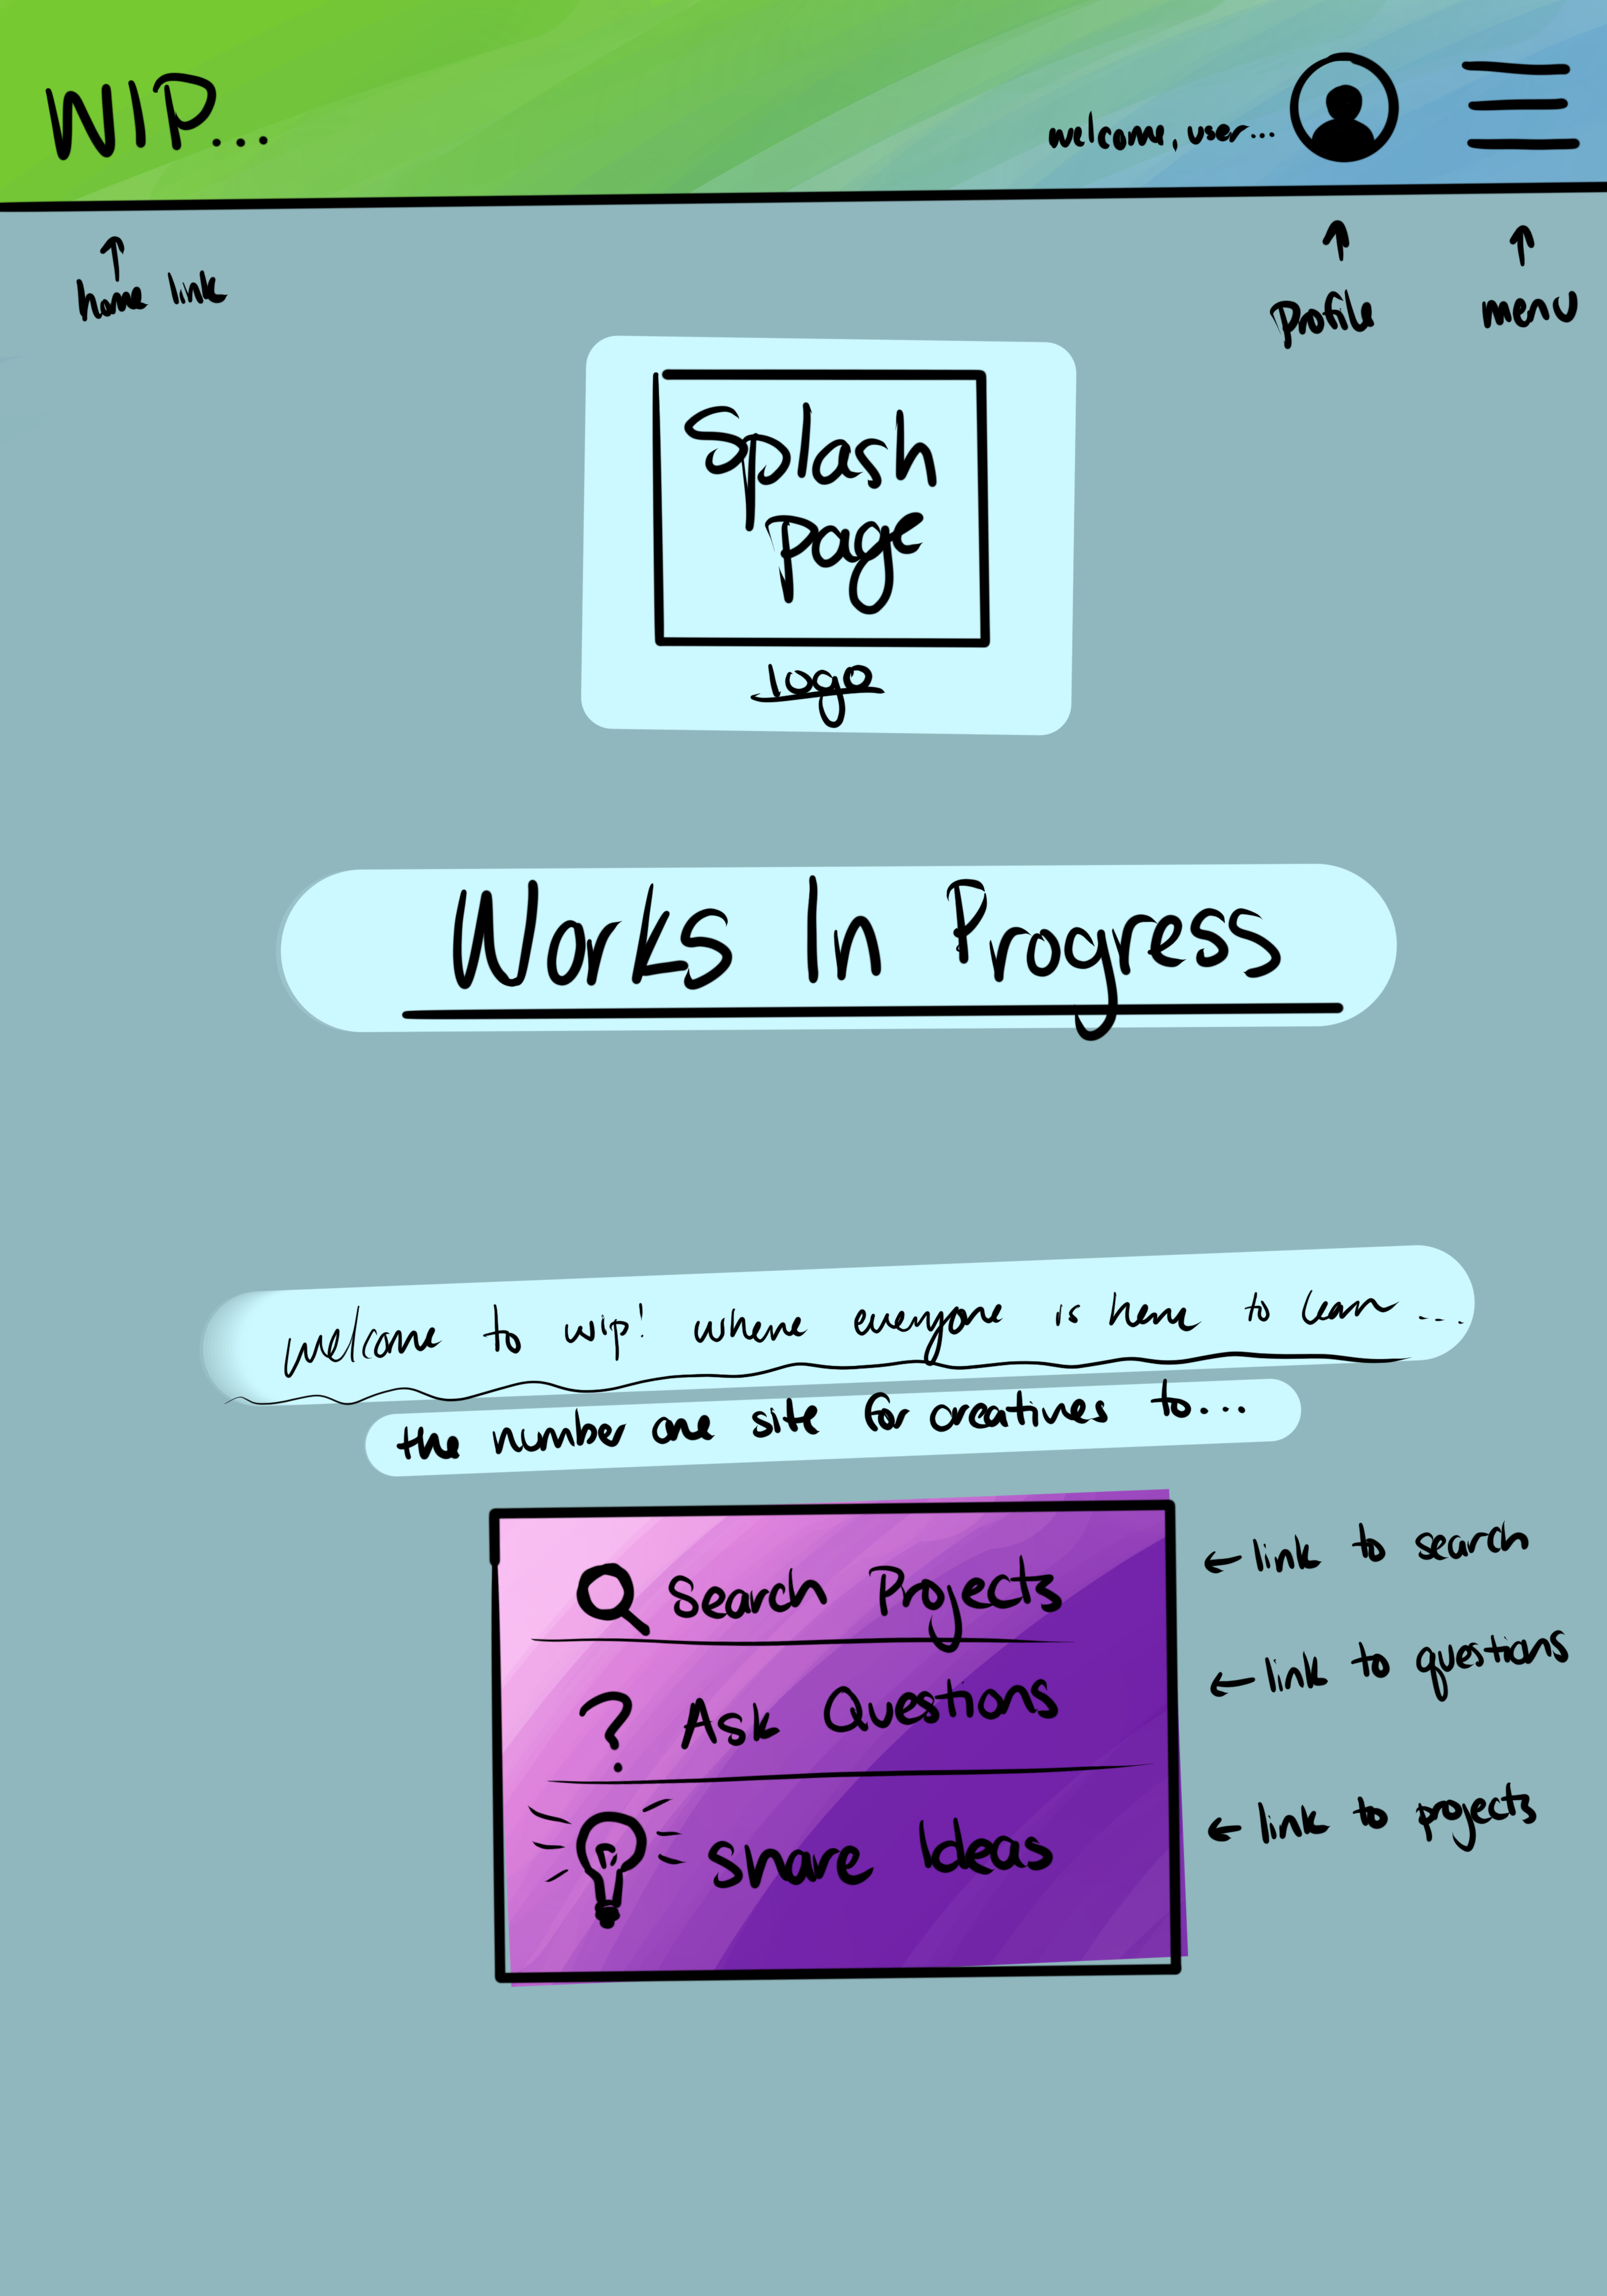 WIP...
welcome, user...
home link
profile
menu
Splash
page
logo
Works In Progress
welcome to wip! where everyone is here to learn....
the number one site for creatives to...
Search Projects
← link to search
? Ask Questions
← link to questions
Share Ideas
← link to projects